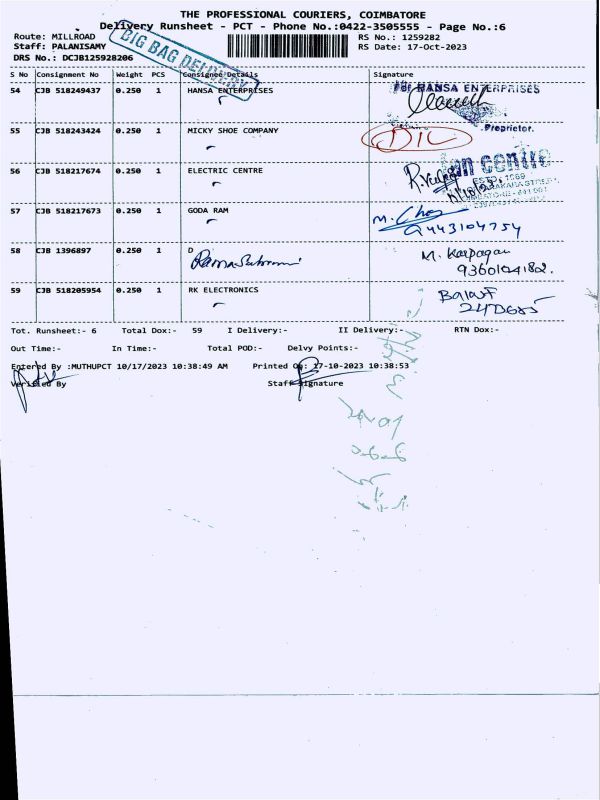 THE PROFESSIONAL COURIERS, COIMBATORE
Delivery Runsheet - PCT - Phone No.:0422-3505555 - Page No.:6
Route: MILLROAD
BIG BAG DELIVERY
RS No.: 1259282
Staff: PALANISAMY
RS Date: 17-Oct-2023
DRS No.: DCJB125928206
S No Consignment No Weight PCS Consignee Details Signature
54 CJB 518249437 0.250 1 HANSA ENTERPRISES
For HANSA ENTERPRISES
Proprietor.
55 CJB 518243424 0.250 1 MICKY SHOE COMPANY
56 CJB 518217674 0.250 1 ELECTRIC CENTRE
centre
57 CJB 518217673 0.250 1 GODA RAM
9443104754
58 CJB 1396897 0.250 1 D
M. Karpagam
59 CJB 518205954 0.250 1 RK ELECTRONICS
Balaji
Tot. Runsheet:- 6 Total Dox:- 59 I Delivery:- II Delivery:- RTN Dox:-
Out Time:- In Time:- Total POD:- Delvy Points:-
Entered By :MUTHUPCT 10/17/2023 10:38:49 AM Printed On: 17-10-2023 10:38:53
Verified By Staff Signature